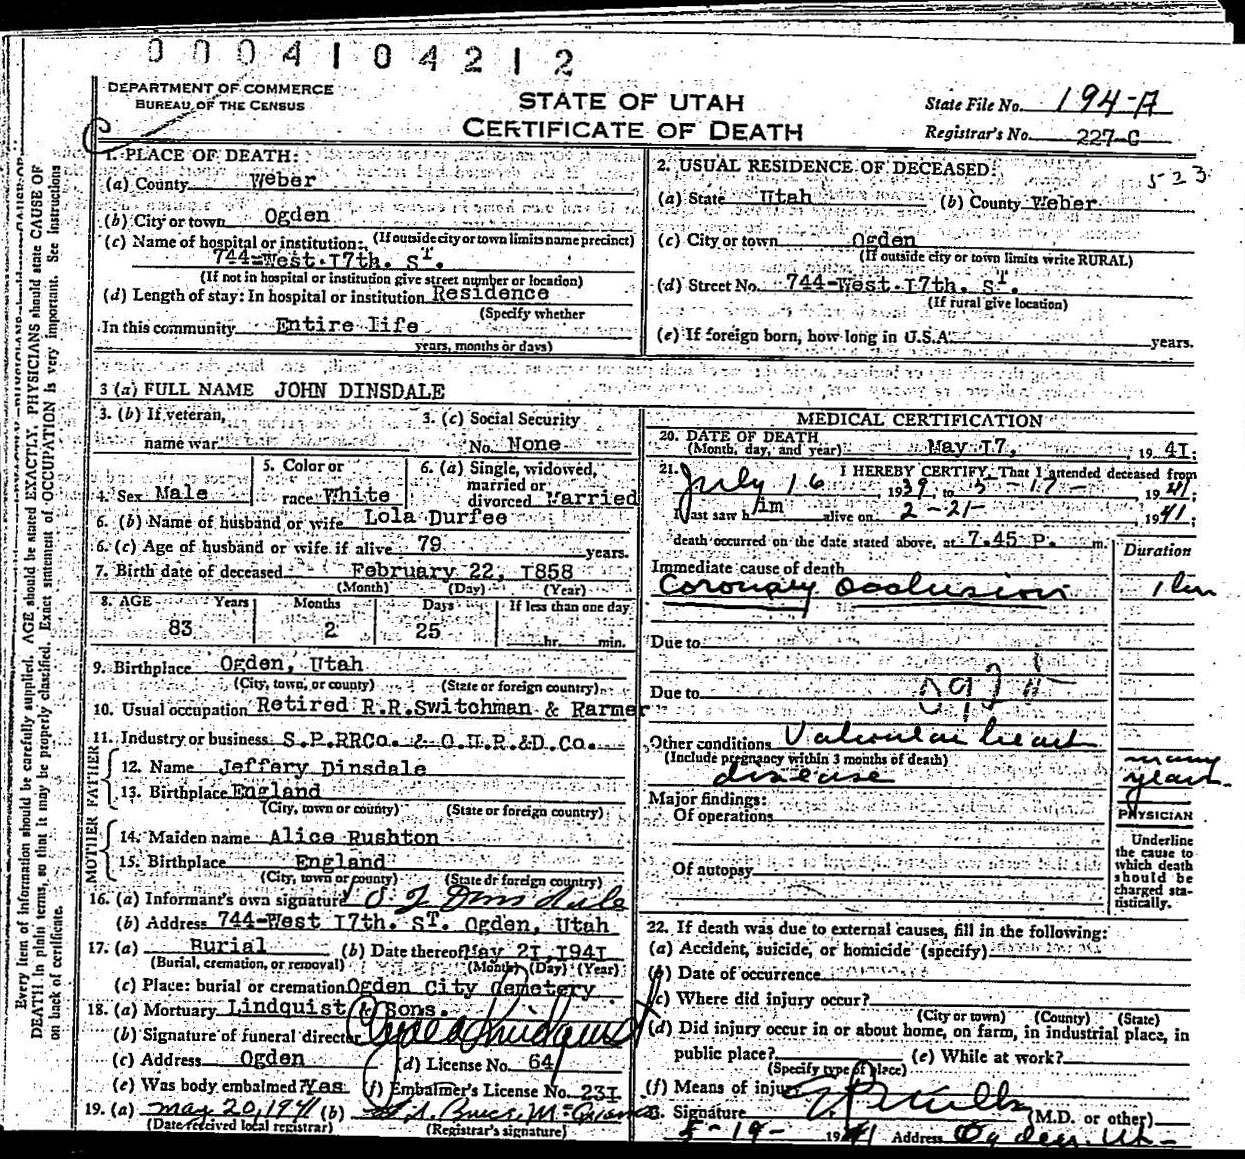 0004104212
DEPARTMENT OF COMMERCE
BUREAU OF THE CENSUS
STATE OF UTAH
CERTIFICATE OF DEATH
State File No. 194-A
Registrar's No. 227-C
523
1. PLACE OF DEATH:
(a) County Weber
(b) City or town Ogden
(If outside city or town limits name precinct)
(c) Name of hospital or institution:
744-West 17th. ST.
(If not in hospital or institution give street number or location)
(d) Length of stay: In hospital or institution Residence
(Specify whether
In this community Entire life
years, months or days)
2. USUAL RESIDENCE OF DECEASED:
(a) State Utah (b) County Weber
(c) City or town Ogden
(If outside city or town limits write RURAL)
(d) Street No. 744-West 17th. ST.
(If rural give location)
(e) If foreign born, how long in U.S.A. years.
3 (a) FULL NAME JOHN DINSDALE
3. (b) If veteran,
name war
3. (c) Social Security
No. None
4. Sex Male
5. Color or
race White
6. (a) Single, widowed,
married or
divorced Married
6. (b) Name of husband or wife Lola Durfee
6. (c) Age of husband or wife if alive 79 years.
7. Birth date of deceased February 22, 1858
(Month) (Day) (Year)
8. AGE Years Months Days If less than one day
83 2 25 hr. min.
9. Birthplace Ogden, Utah
(City, town, or county) (State or foreign country)
10. Usual occupation Retired R.R.Switchman & Farmer
11. Industry or business S.P.RRCo. & O.U.R.&D.Co.
FATHER
12. Name Jeffery Dinsdale
13. Birthplace England
(City, town or county) (State or foreign country)
MOTHER
14. Maiden name Alice Rushton
15. Birthplace England
(City, town or county) (State or foreign country)
16. (a) Informant's own signature Dinsdale
(b) Address 744-West 17th. ST. Ogden, Utah
17. (a) Burial (b) Date thereof May 21, 1941
(Burial, cremation, or removal) (Month) (Day) (Year)
(c) Place: burial or cremation Ogden City Cemetery
18. (a) Mortuary Lindquist & Sons.
(b) Signature of funeral director
(c) Address Ogden (d) License No. 64
(e) Was body embalmed? Yes (f) Embalmer's License No. 231
19. (a) May 20, 1941 (b)
(Date received local registrar) (Registrar's signature)
MEDICAL CERTIFICATION
20. DATE OF DEATH
(Month, day, and year) May 17, 1941;
21. I HEREBY CERTIFY, That I attended deceased from
July 16 1939, to 5-17- 1941;
I last saw him alive on 2-21- 1941;
death occurred on the date stated above, at 7.45 P. m.
Duration
Immediate cause of death
Coronary occlusion
Due to
Due to
Other conditions Valvular heart
(Include pregnancy within 3 months of death)
disease
many
years
Major findings:
Of operations
Of autopsy
PHYSICIAN
Underline
the cause to
which death
should be
charged sta-
tistically.
22. If death was due to external causes, fill in the following:
(a) Accident, suicide, or homicide (specify)
(b) Date of occurrence
(c) Where did injury occur?
(City or town) (County) (State)
(d) Did injury occur in or about home, on farm, in industrial place, in
public place? (e) While at work?
(Specify type of place)
(f) Means of injury
23. Signature (M.D. or other)
5-19- 1941 Address Ogden, Ut-
Every item of information should be carefully supplied. AGE should be stated EXACTLY. PHYSICIANS should state CAUSE OF
DEATH in plain terms, so that it may be properly classified. Exact statement of OCCUPATION is very important. See instructions
on back of certificate.